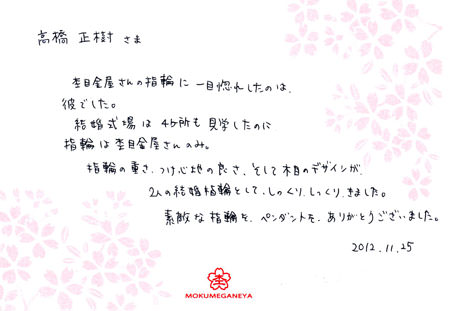 高橋 正樹 さま
杢目金屋さんの指輪に一目惚れしたのは、
彼でした。
結婚式場は4ヶ所も見学したのに
指輪は杢目金屋さんのみ。
指輪の重さ、つけ心地の良さ、そして木目のデザインが、
2人の結婚指輪として、しっくり、しっくり、きました。
素敵な指輪を、ペンダントを、ありがとうございました。
2012.11.25
MOKUMEGANEYA